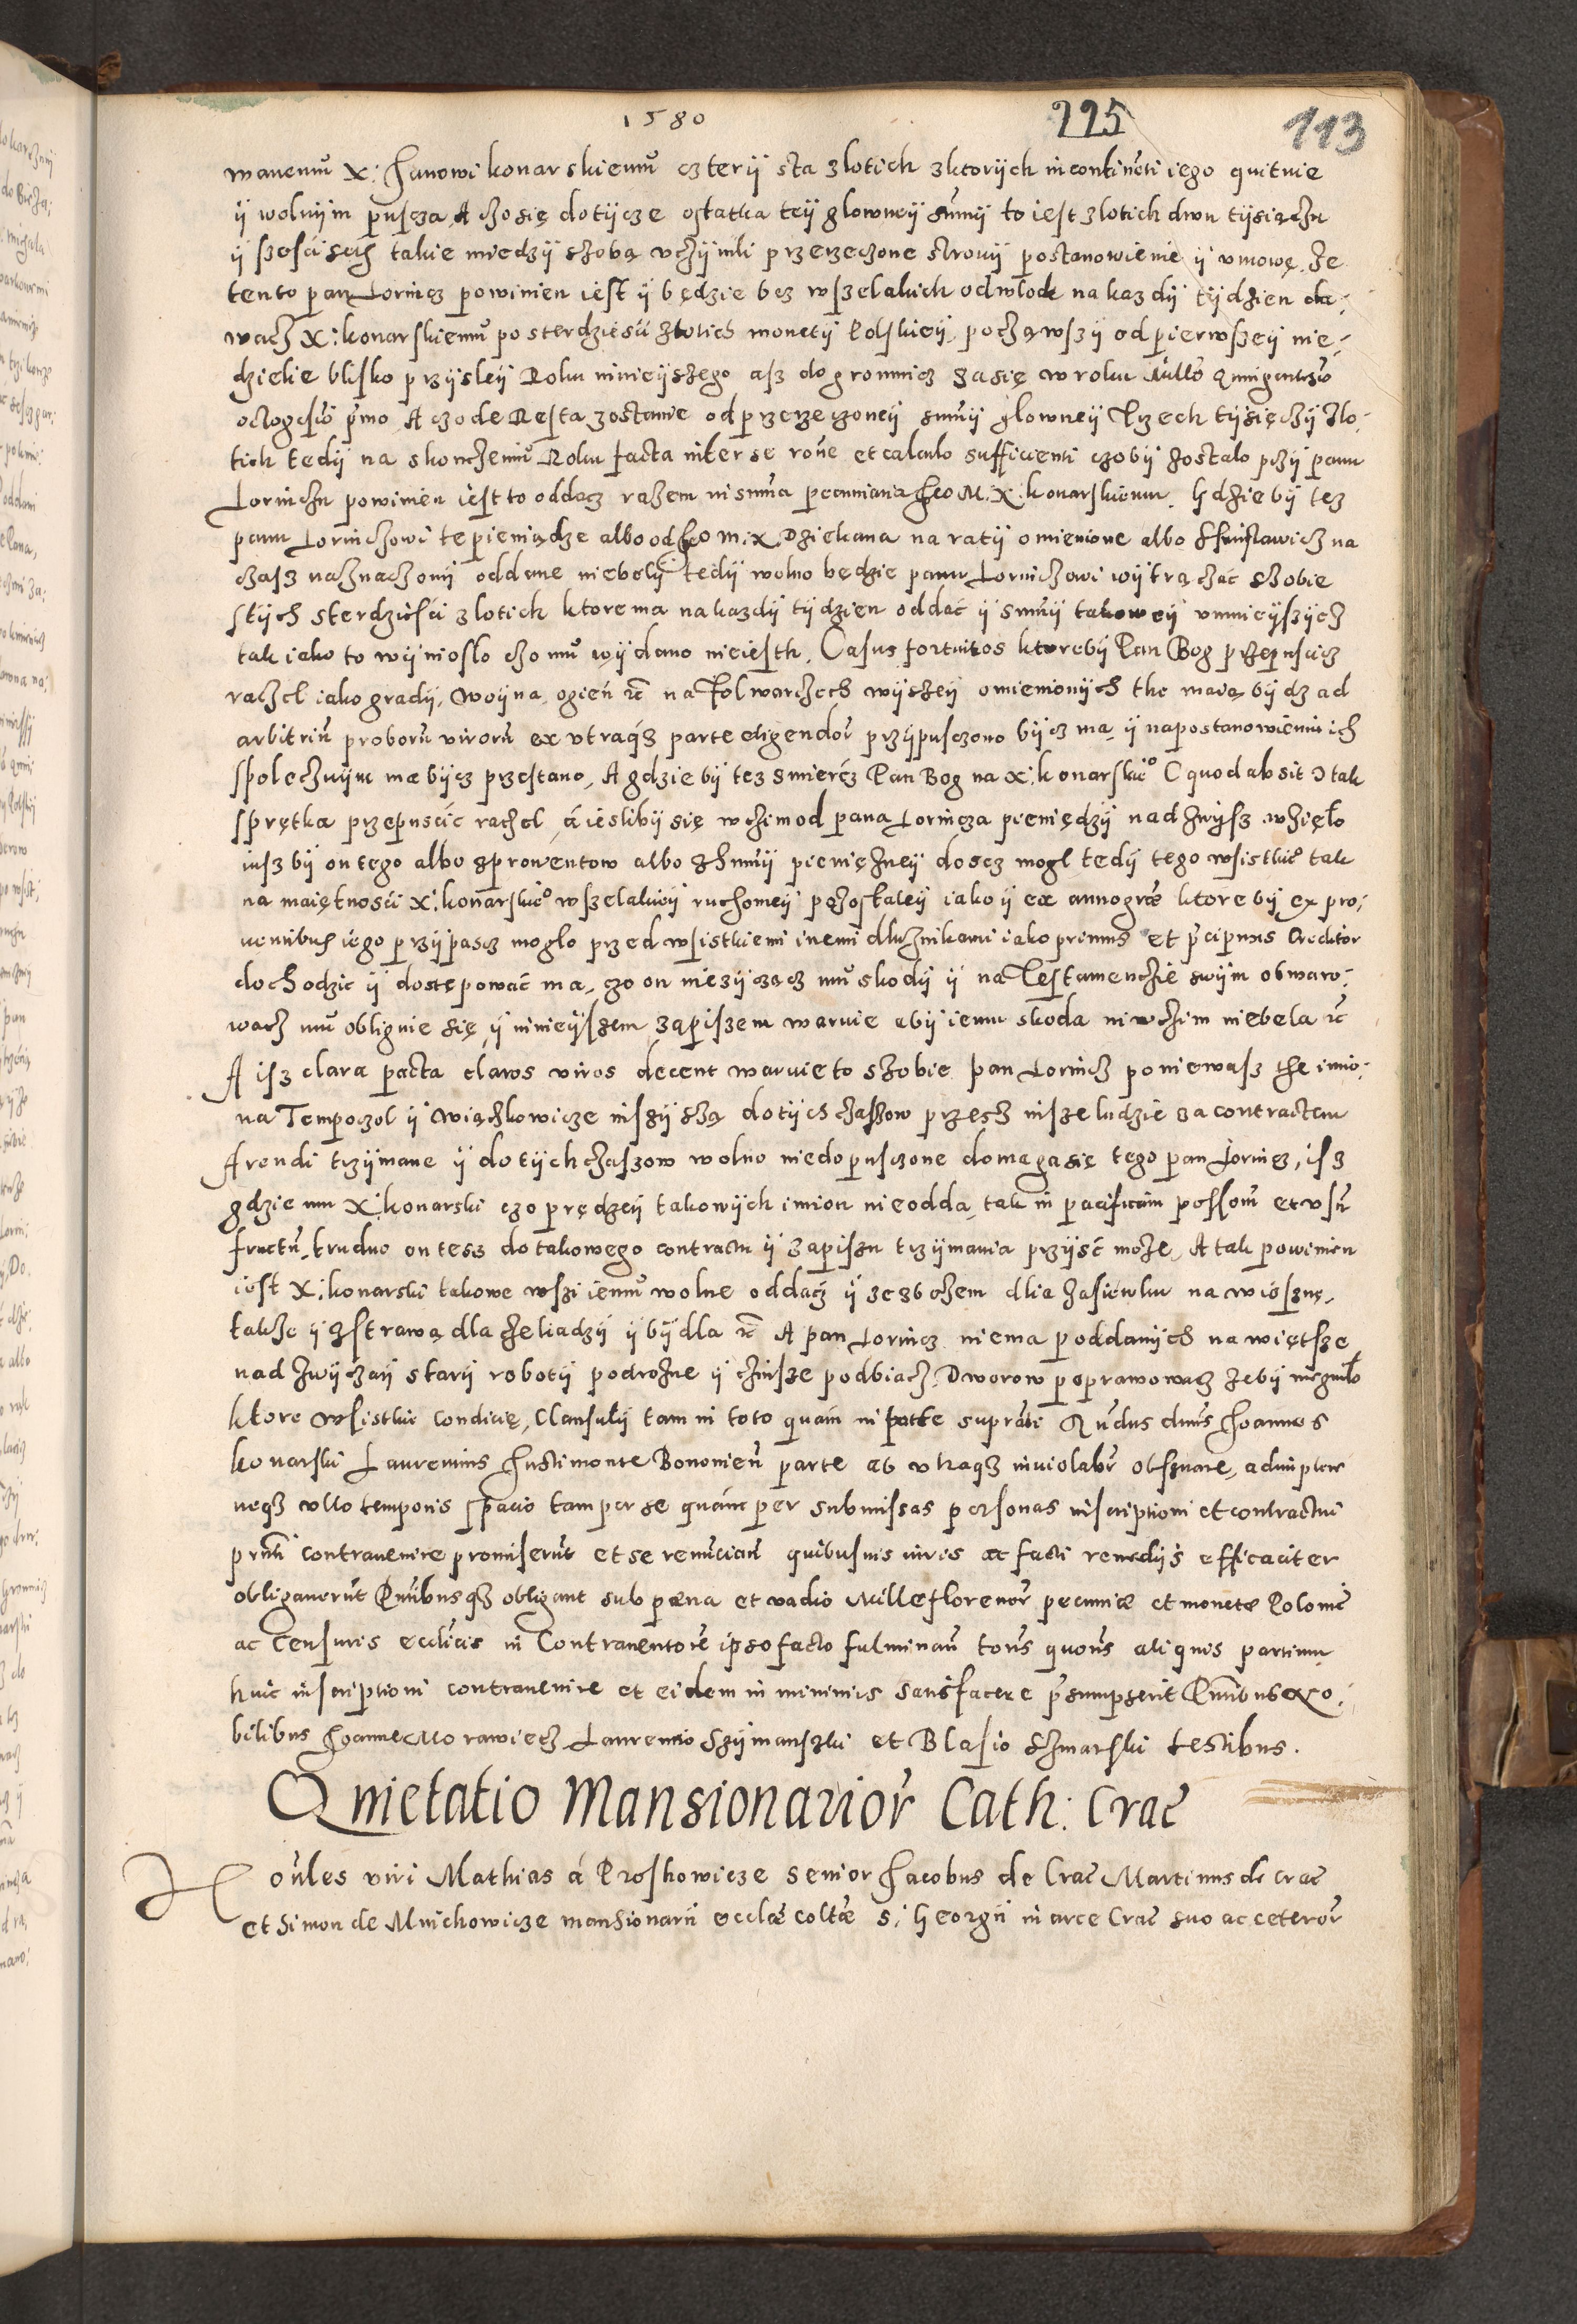 1580
225
113
wanemu X: Janowi konarskiemu czterÿ sta zlotich zktorÿch incontinenti iego quitvie
ÿ wolnÿm pusczа, A czosię dotÿcze ostatka teÿ glowneÿ sumÿ to iest zlotich dwu tÿsiączu
ÿ szesciset takie miedzÿ szobą vczÿnili przerzeczone stronÿ postanowienie ÿ vmowę, Ze
tento pan Lorincz powinien iest ÿ będzie bez wszelakich odwlok na kazdÿ tÿdzien da:
wacz X: konarskiemu po sterdziesci zlotich monetÿ Polskieÿ, począwszÿ od pierwszeÿ nie:
dzielie blisko przÿsleÿ Roku ninieÿszego asz do gromnicz zasię w roku Millo Quingentesimo
octogesimo primo, A czo de Resta zostanie od przerzeczoneÿ sumÿ glowneÿ Trzech tÿsięczÿ zlo:
tich tedÿ na skonczeniu Roku facta inter se rone et calculo sufficienti czobÿ zostalo przÿ panu
Lorinczu powinien iest to oddacz razem in suma pecuniaria Jeo M. X. konarskiemu. Gdzie bÿ tez
panu Lorinczowi te pieniądze albo od Jeo m. X. Dziekana na ratÿ omienione albo na
czasz naznaczonÿ oddane niebelÿ tedÿ wolno będzie panu Lorinczowi wÿtrączać szobie
stÿch sterdziesci zlotich ktore ma na kazdÿ tÿdzien oddać ÿ sumÿ takoweÿ vmnieÿszÿcz
tak iako to wÿnioslo czo mu wÿdano nieiesth. Casus fortuitos ktorebÿ Pan Bog przepuscicz
raczel iako gradÿ, Woÿna, ogień etc na folwarczech wÿszeÿ omienionÿch the maią bÿdz ad
arbitriu proboru viroru ex vtraqz parte eligendor przÿpusczono bÿcz ma, ÿ na postanowieniu ich
spolecznÿm ma bÿcz przestano, A gdzie bÿ tez smiercz Pan Bog na X: konarskieo (quod absit) tak
sprętka przepuscić raczel, á iesliby się w czim od pana Lorincza pieniędzÿ nad zwÿsz wzięło
iusz bÿ on tego albo zprowentow albo zsumÿ pienięzneÿ dosez mogl tedÿ tego wsistkieo tak
na maiętnosci X: konarskieo wszelakieÿ ruchomeÿ pozostaleÿ iako ÿ ex anno grae ktore bÿ ex pro:
uentibus iego przÿpasz moglo przed wsistkiemi inemi dluznikami iako primus et pcipuus Creditor
dochodzic ÿ dostępować ma, czo on niezÿcząc mu skodÿ ÿ na Testamenczie swÿm obwaro:
wacz mu obliguie się, ÿ ninieÿszem zapiszem waruie abÿ iemu skoda niwczim niebela etc
A isz clara pacta claros viros decent waruie to szobie pan Lorincz poniewasz the imio:
na Tempoczol ÿ Więczkowicze inszÿ szą dotÿch czaszow przesz insze ludzie za contractem
Arendi trzÿmane ÿ dotÿch czaszow wolno niedopusczone domaga się tego pan Lorincz, isz
gdzie mu X: konarski czo prędzeÿ takowÿch imion nieodda, tak in pacificam posssom et vsu
fructu, trudno on tesz do takowego contractu ÿ zapiszu trzÿmania przÿść moze, A tak powinien
iest X: konarski takowe wszi iemu wolne oddacz ÿ ze zbozem dlia zasiewku na wiosznę,
takze ÿ zstrawą dla czeliadzÿ ÿ bÿdla etc A pan Lorincz niema poddanÿch na więtsze
nad zwÿczaÿ starÿ robotÿ podrozne ÿ czinsze podbiacz, Dworow poprawowacz zebÿ niegniło
ktore wsistkie condicię, Clausulÿ tam in toto quam in parte suprati Rndus dnus Joannes
konarski Laurentius Justimonte Bononien parte ab vtraqz inviolabr obseruare, adimplere
neqz vllo temporis spacio tam per se quam per submissas personas inscriptioni et contractui
pnti contrauenire promiserut et se renuncian quibusuis iuris ac facti remedÿs efficaciter
obligauerut Pntibusqz obligant sub poena et vadio Mille florenor pecuniae et monetae Polonic
ac censuris ecclicis in Contrauentore ipso facto fulminan tons quons aliquis partium
huic inscriptioni contrauenire et eidem in minimis satisfacere psumpserit Pntibus No:
bilibus Joanne Morawiecz Laurentio Szÿmanszki et Blasio testibus.
Quietatio Mansionarior Cath: Crac
Honles viri Mathias á Proshowicze senior Jacobus de Crac Martinus de Crac
et Simon de Mnichowicze mansionarii ecclae coltae S: Georgii in arce Crac suo ac ceteror